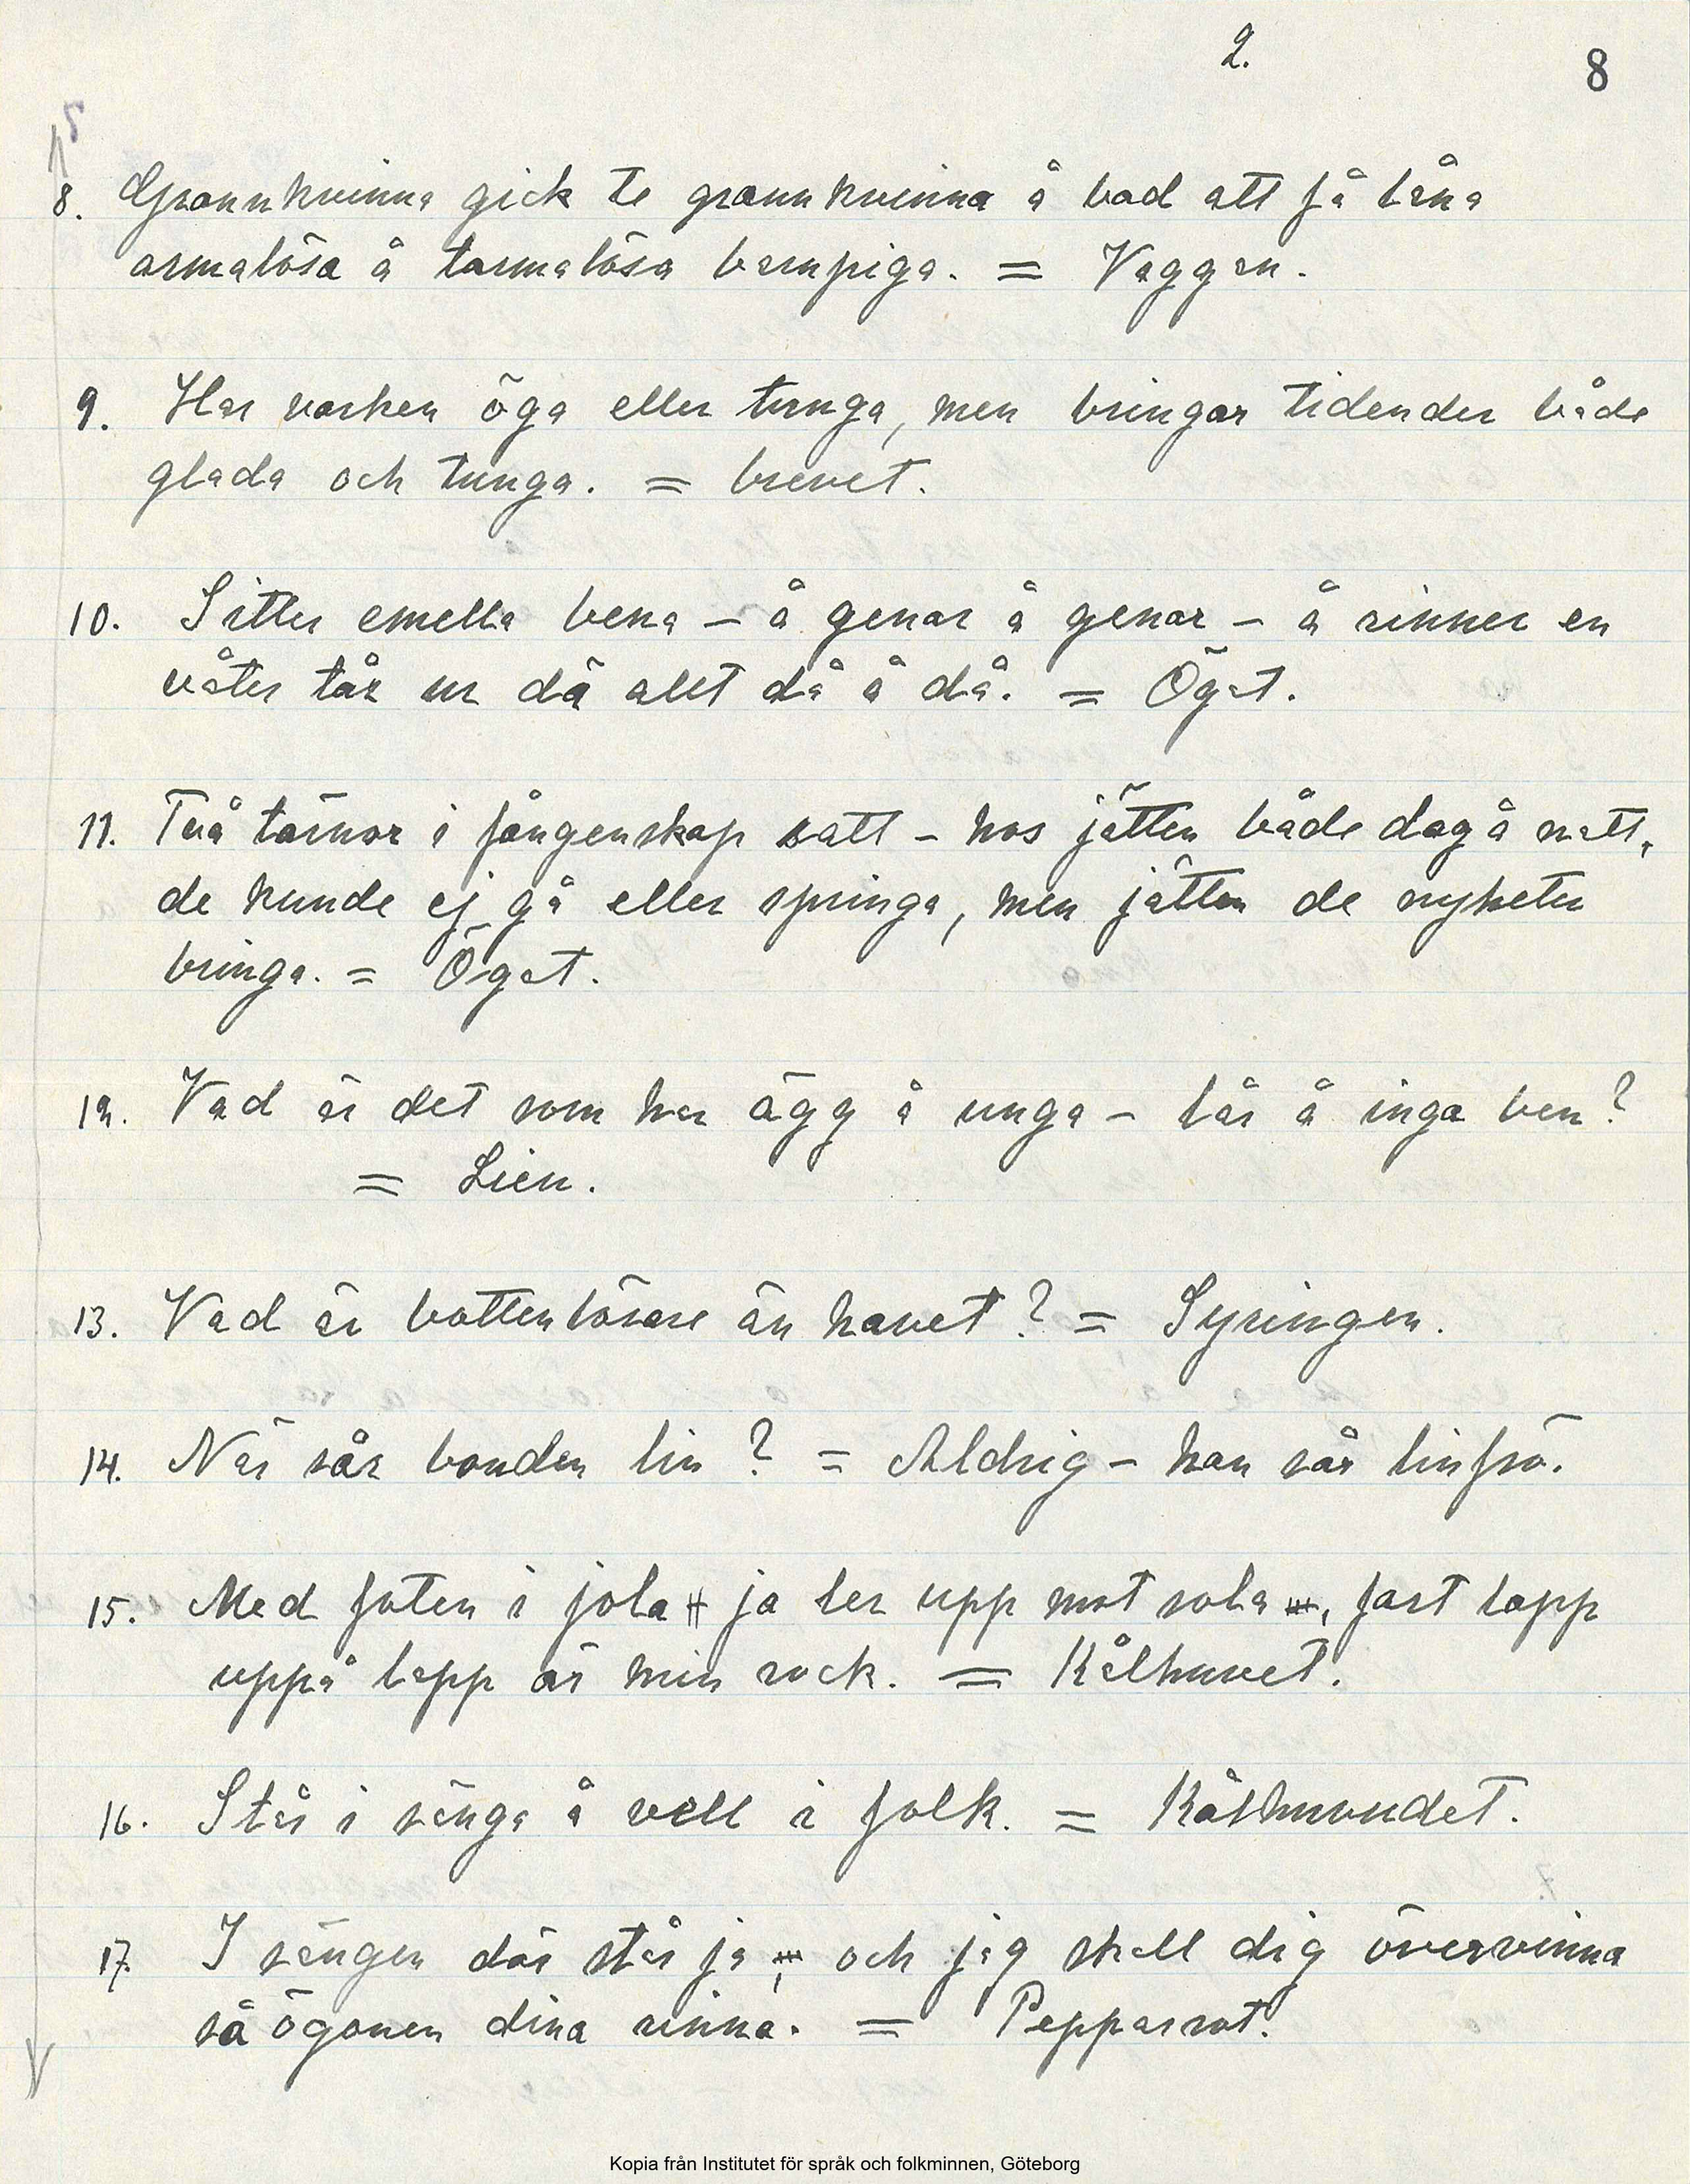 2.
8
8. Grannkvinna gick te grannkvinna å bad att få låna
armalösa å tarmalösa barnpiga. = Vaggan.
9. Har varken öga eller tunga, men bringar tidender både
glada och tunga. = brevet.
10. Sitter emella bena – å genar å genar – å rinner en
våter tår ur dä allt då å då. = Ögat.
11. Två tärnor i fångenskap satt – hos jätten både dag å natt,
de kunde ej gå eller springa, men jätten de nyheter
bringa. = Ögat.
12. Vad är det som har ägg å unga – lår å inga ben?
= Lien.
13. Vad är bottenlösare än havet? = Syringen.
14. När sår bonden lin? = Aldrig – han sår linfrö.
15. Med foten i jola ja ler upp mot sola, fast lapp
uppå lapp är min rock. = Kålhuvet.
16. Står i sänga å vell i folk. = Kålhuvudet.
17. I sängen där står ja, och jag skall dig övervinna
så ögonen dina rinna. = Pepparrot.
Kopia från Institutet för språk och folkminnen, Göteborg